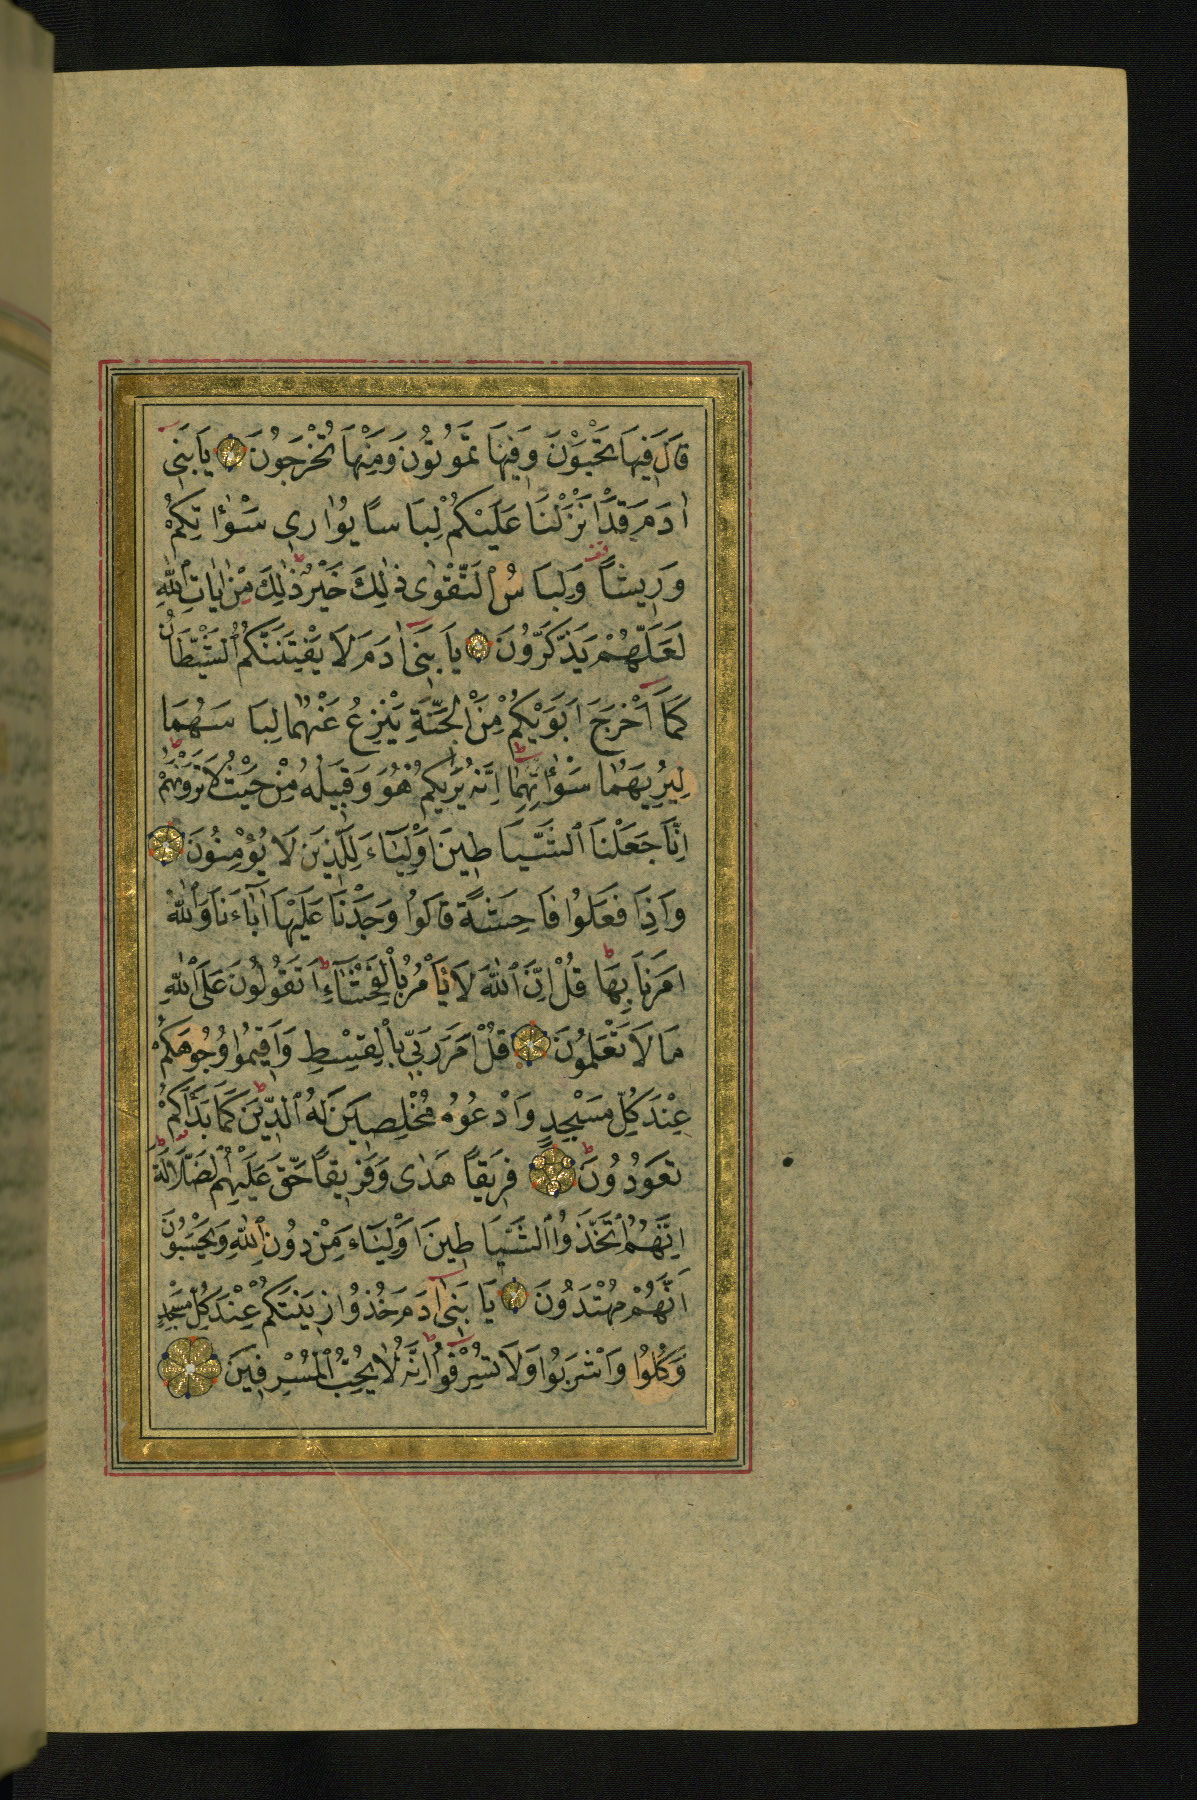 قَالَ فِيهَا تَحْيَوْنَ وَفِيهَا تَمُوتُونَ وَمِنْهَا تُخْرَجُونَ يَابَنِى
اٰدَمَ قَدْ اَنْزَلْنَا عَلَيْكُمْ لِبَاسًا يُوَارِى سَوْاٰتِكُمْ
وَرِيشًا وَلِبَاسُ التَّقْوٰى ذٰلِكَ خَيْرٌ ذٰلِكَ مِنْ اٰيَاتِ اللّٰهِ
لَعَلَّهُمْ يَذَّكَّرُونَ يَابَنِى اٰدَمَ لَا يَفْتِنَنَّكُمُ الشَّيْطَانُ
كَمَا اَخْرَجَ اَبَوَيْكُمْ مِنَ الْجَنَّةِ يَنْزِعُ عَنْهُمَا لِبَاسَهُمَا
لِيُرِيَهُمَا سَوْاٰتِهِمَا اِنَّهُ يَرٰيكُمْ هُوَ وَقَبِيلُهُ مِنْ حَيْثُ لَا تَرَوْنَهُمْ
اِنَّا جَعَلْنَا الشَّيَاطِينَ اَوْلِيَاءَ لِلَّذِينَ لَا يُؤْمِنُونَ
وَاِذَا فَعَلُوا فَاحِشَةً قَالُوا وَجَدْنَا عَلَيْهَا اٰبَاءَنَا وَاللّٰهُ
اَمَرَنَا بِهَا قُلْ اِنَّ اللّٰهَ لَا يَأْمُرُ بِالْفَحْشَاءِ اَتَقُولُونَ عَلَى اللّٰهِ
مَا لَا تَعْلَمُونَ قُلْ اَمَرَ رَبِّى بِالْقِسْطِ وَاَقِيمُوا وُجُوهَكُمْ
عِنْدَ كُلِّ مَسْجِدٍ وَادْعُوهُ مُخْلِصِينَ لَهُ الدِّينَ كَمَا بَدَاَكُمْ
تَعُودُونَ فَرِيقًا هَدٰى وَفَرِيقًا حَقَّ عَلَيْهِمُ الضَّلَالَةُ
اِنَّهُمُ اتَّخَذُوا الشَّيَاطِينَ اَوْلِيَاءَ مِنْ دُونِ اللّٰهِ وَيَحْسَبُونَ
اَنَّهُمْ مُهْتَدُونَ يَا بَنِى اٰدَمَ خُذُوا زِينَتَكُمْ عِنْدَ كُلِّ مَسْجِدٍ
وَكُلُوا وَاشْرَبُوا وَلَا تُسْرِفُوا اِنَّهُ لَا يُحِبُّ الْمُسْرِفِينَ